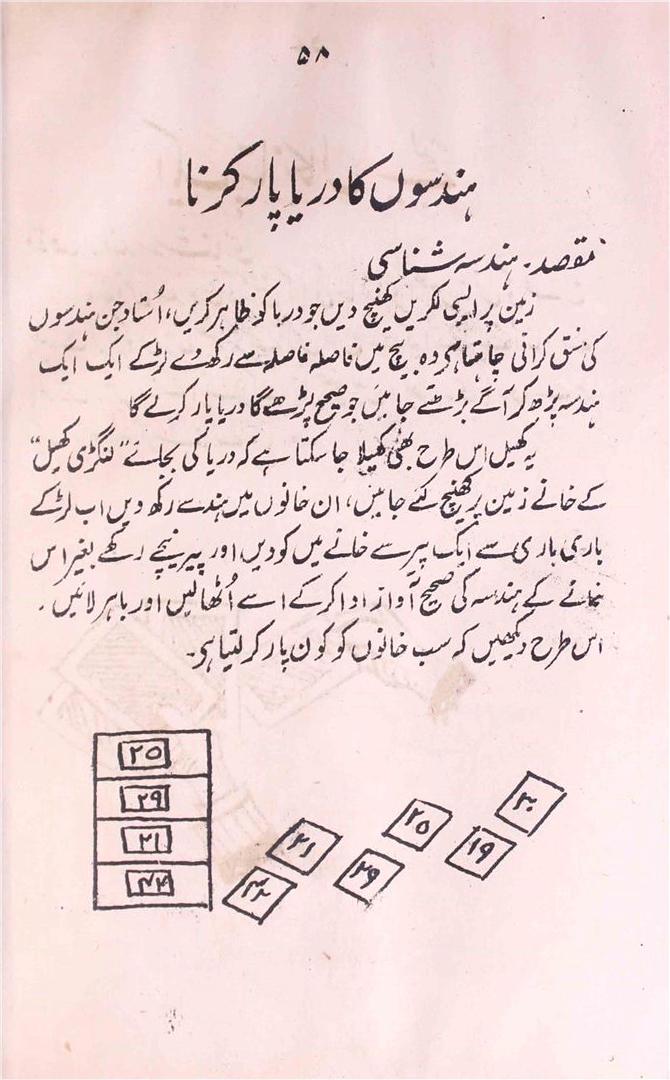 ۵۸
ہندسوں کا دریا پار کرنا
مقصد۔ ہندسہ شناسی
زمین پر ایسی لکریں کھینچ دیں جو دریا کو ظاہر کریں، اُستاد جن ہندسوں
کی مشق کرانی چاہتا ہو وہ بیچ میں فاصلہ فاصلہ سے رکھ دے لڑکے ایک ایک
ہندسہ پڑھ کر آگے بڑھتے جائیں جو صحیح پڑھے گا دریا پار کرلے گا
یہ کھیل اس طرح بھی کھیلا جا سکتا ہے کہ دریا کی بجائے "لنگڑی کھیل"
کے خانے زمین پر کھینچ لئے جائیں، ان خانوں میں ہندسے رکھ دیں اب لڑکے
باری باری سے ایک پیر سے خانے میں کودیں اور پیر نیچے رکھے بغیر اس
خانے کے ہندسہ کی صحیح آواز ادا کرکے اسے اُٹھالیں اور باہر لائیں ۔
اس طرح دیکھیں کہ سب خانوں کو کون پار کر لیتا ہی۔
۲۵
۲۹
۲۱
۴۴
۳۰
۲۵
۱۹
۲۱
۲۹